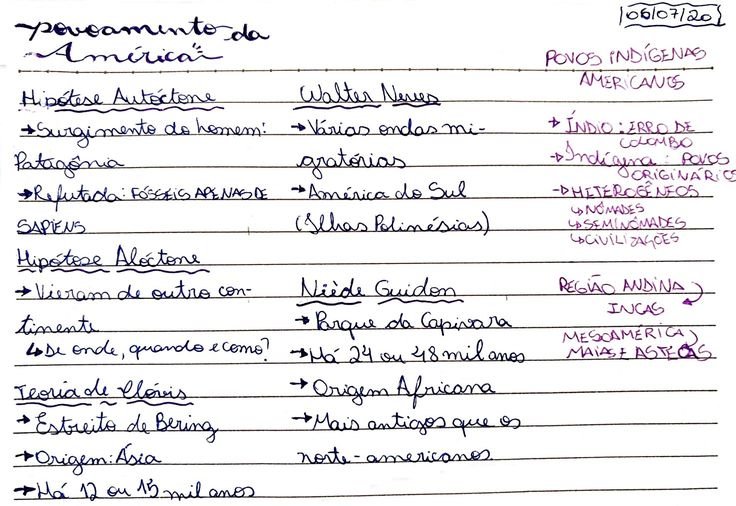 povoamento da
América
06/07/20
Hipótese Autóctone
→ Surgimento do homem:
Patagônia
→ Refutada: FÓSSEIS APENAS DE
SAPIENS
Hipótese Alóctone
→ Vieram de outro con-
tinente
↳ De onde, quando e como?
Teoria de Clóvis
→ Estreito de Bering
→ Origem: Ásia
→ Há 12 ou 15 mil anos
Walter Neves
→ Várias ondas mi-
gratórias
→ América do Sul
(Ilhas Polinésias)
Niède Guidon
→ Parque da Capivara
→ Há 24 ou 48 mil anos
→ Origem Africana
→ Mais antigos que os
norte-americanos
POVOS INDÍGENAS
AMERICANOS
→ ÍNDIO: ERRO DE
COLOMBO
→ Indígena: POVOS
ORIGINÁRIOS
→ HETEROGÊNEOS
↳ NÔMADES
↳ SEMINÔMADES
↳ CIVILIZAÇÕES
REGIÃO ANDINA
INCAS
MESOAMÉRICA
MAIAS E ASTECAS